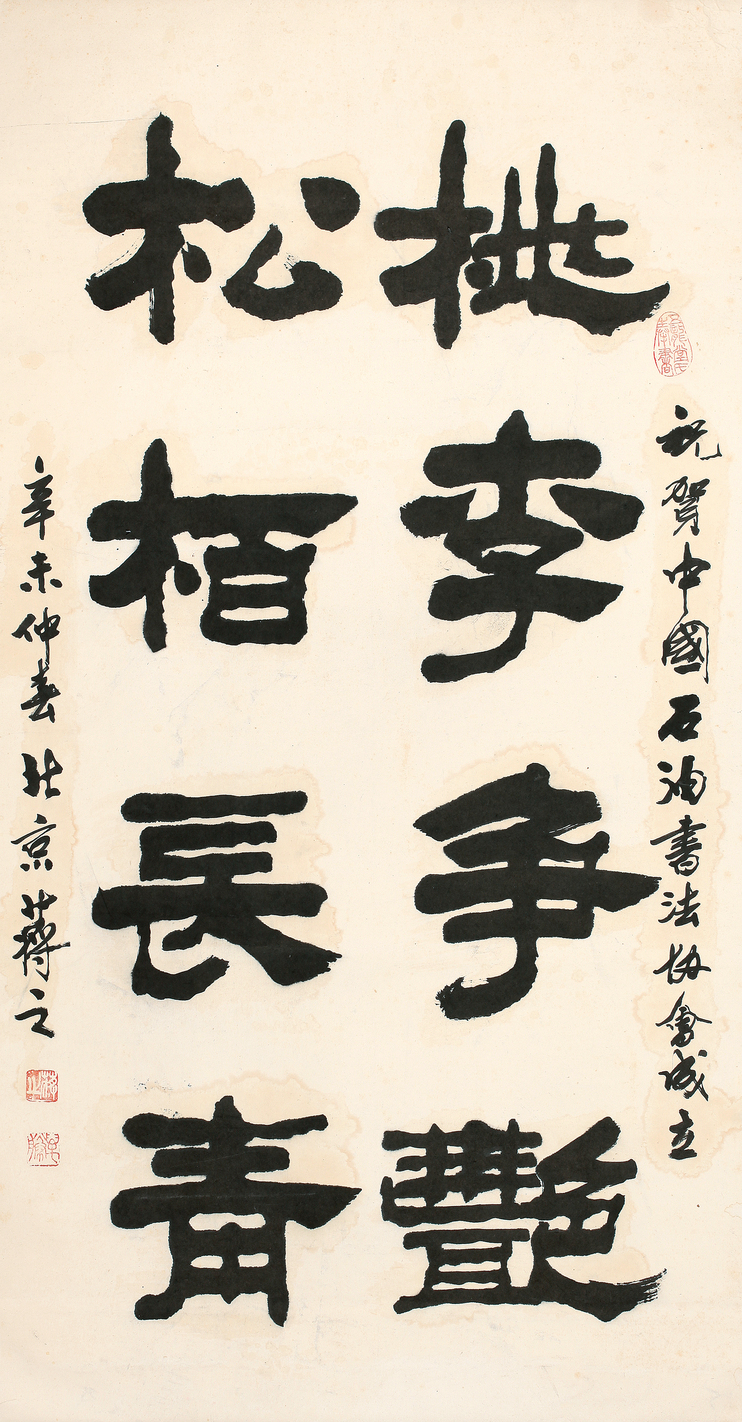 祝賀中國石油書法協會成立
桃李爭艷
松柏長青
辛未仲春北京蔣之